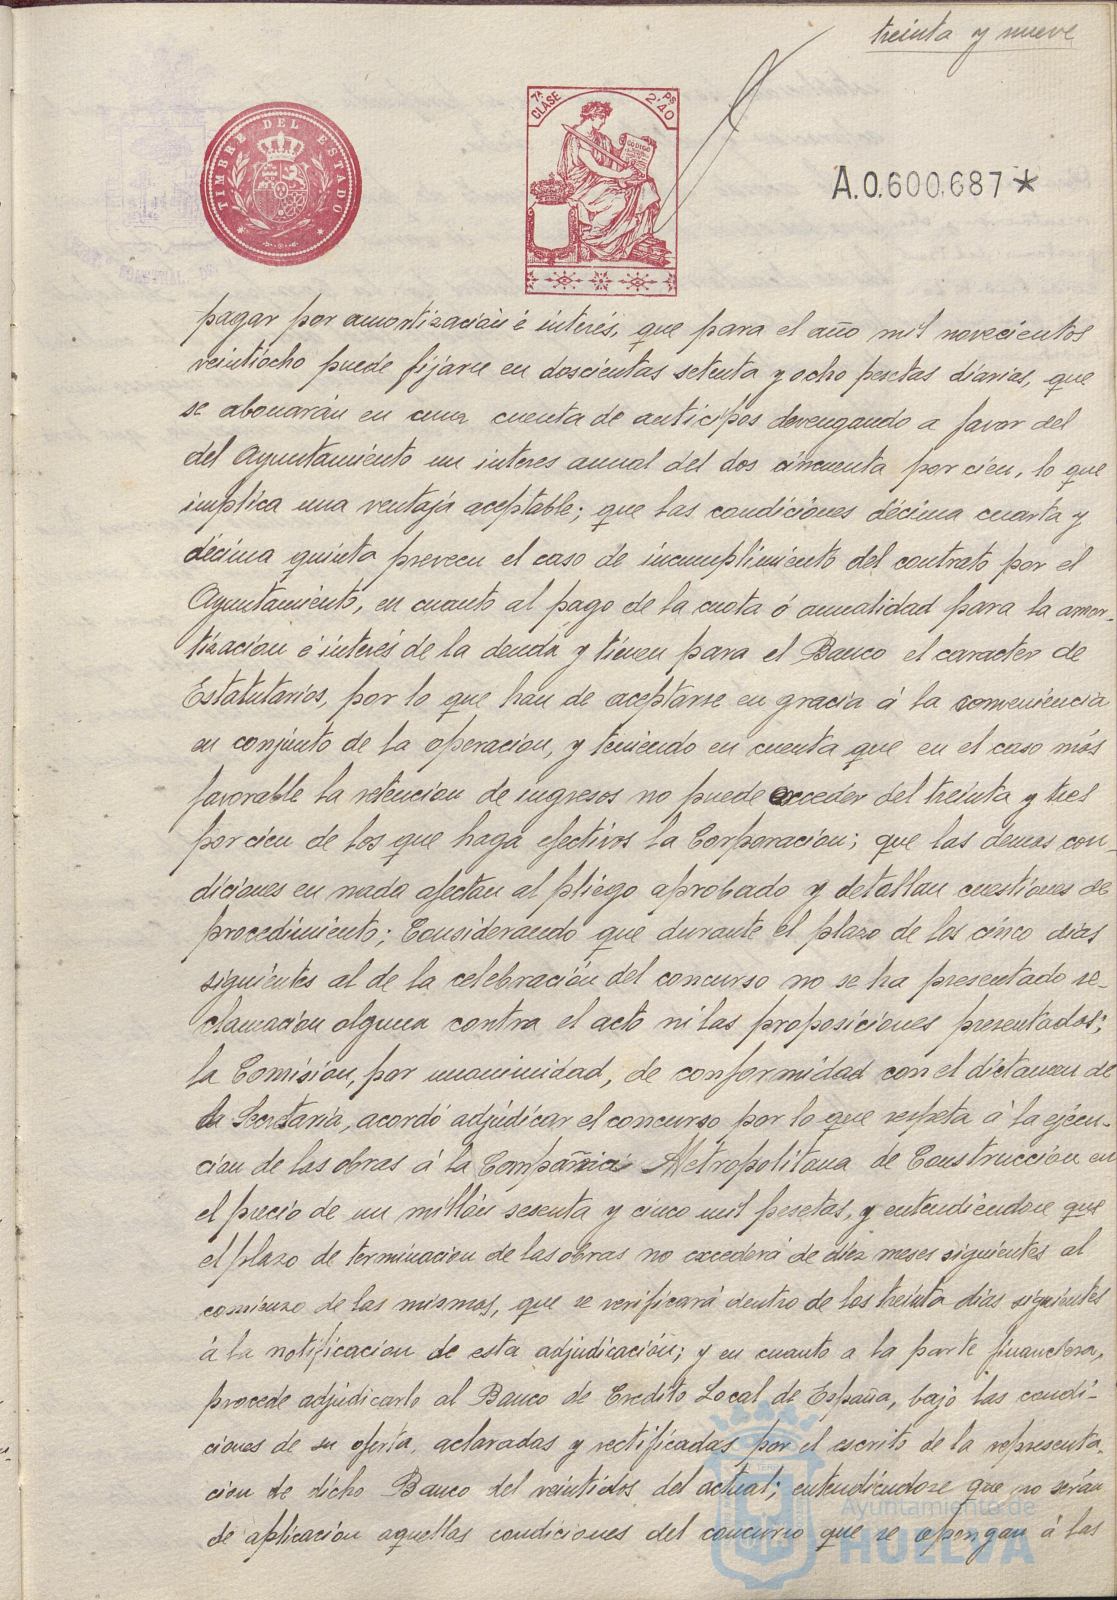 treinta y nueve
TIMBRE DEL ESTADO
7ª CLASE
Ps 2'40
CODIGO
A.0.600.687*
pagar por amortización é interés, que para el año mil novecientos
veintiocho puede fijarse en doscientas setenta y ocho pesetas diarias, que
se abonarán en una cuenta de anticipos devengando a favor del
del Ayuntamiento un interes anual del dos cincuenta por cien, lo que
implica una ventaja aceptable; que las condiciones décima cuarta y
décima quinta preveen el caso de incumplimiento del contrato por el
Ayuntamiento, en cuanto al pago de la cuota ó anualidad para la amor-
tización é interés de la deuda y tienen para el Banco el caracter de
Estatutarios, por lo que han de aceptarse en gracia á la conveniencia
en conjunto de la operacion, y teniendo en cuenta que en el caso más
favorable la retencion de ingresos no puede exceder del treinta y tres
por cien de los que haga efectivos la Corporacion; que las demas con-
diciones en nada afectan al pliego aprobado y detallan cuestiones de
procedimiento; Considerando que durante el plazo de los cinco dias
siguientes al de la celebración del concurso no se ha presentado re-
clamacion alguna contra el acto ni las proposiciones presentadas;
la Comision, por unanimidad, de conformidad con el dictamen de
la Secretaria, acordó adjudicar el concurso por lo que respeta á la ejecu-
cion de las obras á la Compañia Metropolitana de Construccion en
el precio de un millón sesenta y cinco mil pesetas, y entendiendose que
el plazo de terminacion de las obras no excederá de diez meses siguientes al
comienzo de las mismas, que se verificará dentro de los treinta dias siguientes
á la notificacion de esta adjudicación; y en cuanto a la parte financiera,
procede adjudicarlo al Banco de Credito Local de España, bajo las condi-
ciones de su oferta, aclaradas y rectificadas por el escrito de la representa-
cion de dicho Banco del veintidos del actual; entendiéndose que no serán
de aplicación aquellas condiciones del concurso que se opongan á las
Ayuntamiento de
HUELVA